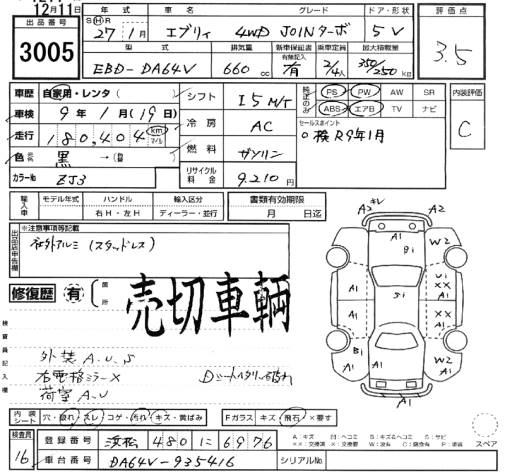 12月11日
出品番号 年式 車名 グレード ドア・形状 評価点
3005
SⒽR 27年 1月 エブリィ 4WD JOINターボ 5 V
3.5
型式 排気量 新車保証書 有無記入 乗車定員 最大積載量
EBD-DA64V 660 cc 有 2/4人 350/250 kg
車歴 自家用・レンタ( ) シフト I5 M/T 純正のみ PS PW AW SR 内装評価
ABS エアB TV ナビ
車検 9年 1月 (19日) 冷房 AC セールスポイント C
走行 180,404 km マイル 検R9年1月
色 黒 燃料 ガソリン
カラーNo ZJ3 リサイクル料金 9,210円
輸入車 モデル年式 ハンドル 輸入区分 書類有効期限
右H・左H ディーラー・並行 月 日迄
出品店申告欄 ※注意事項等記載
社外アルミ (スタッドレス)
修復歴 有 箇所
売切車輌
検査員記入欄
外装A.U.S
右電格ミラーX Dシートヘタリ
荷室A.U
A2 キズ A2
A1 W2
A1 Bi
A1 Ui
A1 Si XX XX A1
A1
B1 W2
A1 A1
A1
内装シート 穴・破れ・スレ・コゲ・汚れ・キズ・黄ばみ Fガラス キズ・飛石・×要す
スペア
検査員 登録番号 浜松 480 に 6976
16 車台番号 DA64V-935416 シリアルNo.